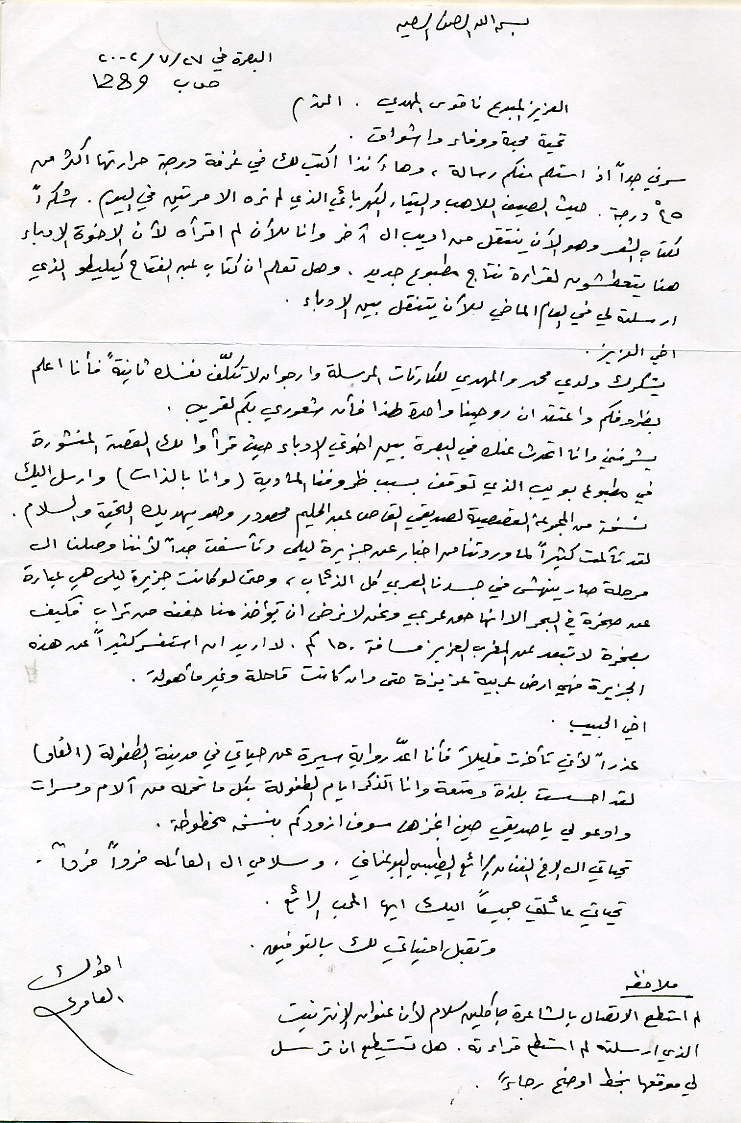 بسم الله الرحمن الرحيم
البصرة في ٢٧/٧/٢٠٠٢
ص.ب 1289
العزيز المبدع ناقوس المهدي . المحترم
تحية محبة ووفاء واشواق .
سرني جداً اذ استلم منكم رسالة ، وها أنذا اكتب لك في غرفة درجة حرارتها اكثر من
٤٥ْ درجة . حيث الصيف اللاهب والتيار الكهربائي الذي لم نره الا مرتين في اليوم . شكراً
لكتاب الشعر وهو الآن ينتقل من اديب الى آخر وانا للآن لم اقرأه لأن الاخوة الادباء
هنا يتعطشون لقراءة نتاج مطبوع جديد . وهل تعلم ان كتاب عبد الفتاح كيليطو الذي
ارسلته لي في العام الماضي للآن يتنقل بين الادباء .
اخي العزيز .
يشكرك ولدي محمد والمهدي للكارتات المرسلة وارجو ان لا تكلّف نفسك ثانيةً فأنا اعلم
بظروفكم واعتقد ان روحينا واحدة لهذا فأن شعوري بكم لقريب .
يشرفني وانا اتحدث عنك في البصرة بين اخوتي الادباء حيث قرأوا لك القصة المنشورة
في مطبوع بويب الذي توقف بسبب ظروفنا المادية (وانا بالذات) وارسل اليك
نسخة من المجموعة القصصية لصديقي القاص عبد الحليم مهودر وهو يهديك التحية والسلام .
لقد تألمت كثيراً لما وردتنا من اخبار عن جزيرة ليلى وتأسفت جداً لأننا وصلنا الى
مرحلة صار ينهش في جسدنا العربي كل الذئاب ، وحتى لو كانت جزيرة ليلى هي عبارة
عن صخرة في البحر الا انها حق عربي ونحن لا نرضى ان تؤخذ منا حفنة من تراب فكيف
بصخرة لا تبعد عن المغرب العزيز مسافة ١٥٠ م . لا اريد ان استفسر كثيراً عن هذه
الجزيرة فهي ارض عربية عزيزة حتى وان كانت قاحلة وغير مأهولة .
اخي الحبيب .
عذراً لأني تأخرت قليلاً فأنا اعدّ رواية سيرة عن حياتي في مدينة الطفولة (الفاو)
لقد احسست بلذة ومتعة وانا اتذكر ايام الطفولة بكل ما تحمله من آلام ومسرات
وادعو لي يا صديقي حين انجزها سوف ازودكم بنسخة مخطوطة .
تحياتي الى الاخ الفنان الرائع الطيب البوعناني ، وسلامي الى العائلة فرداً فرداً .
تحياتي عائلتي جميعاً اليك ايها المحب الرائع .
وتقبل احنياتي لك بالتوفيق .
اخوك
العامري
ملاحظة
لم استطع الاتصال بالشاعرة جاكلين سلام لأن عنوان الانترنيت
الذي ارسلته لم استطع قراءته . هل تستطيع ان ترسل
لي موقعها بخط اوضح رجاءً .